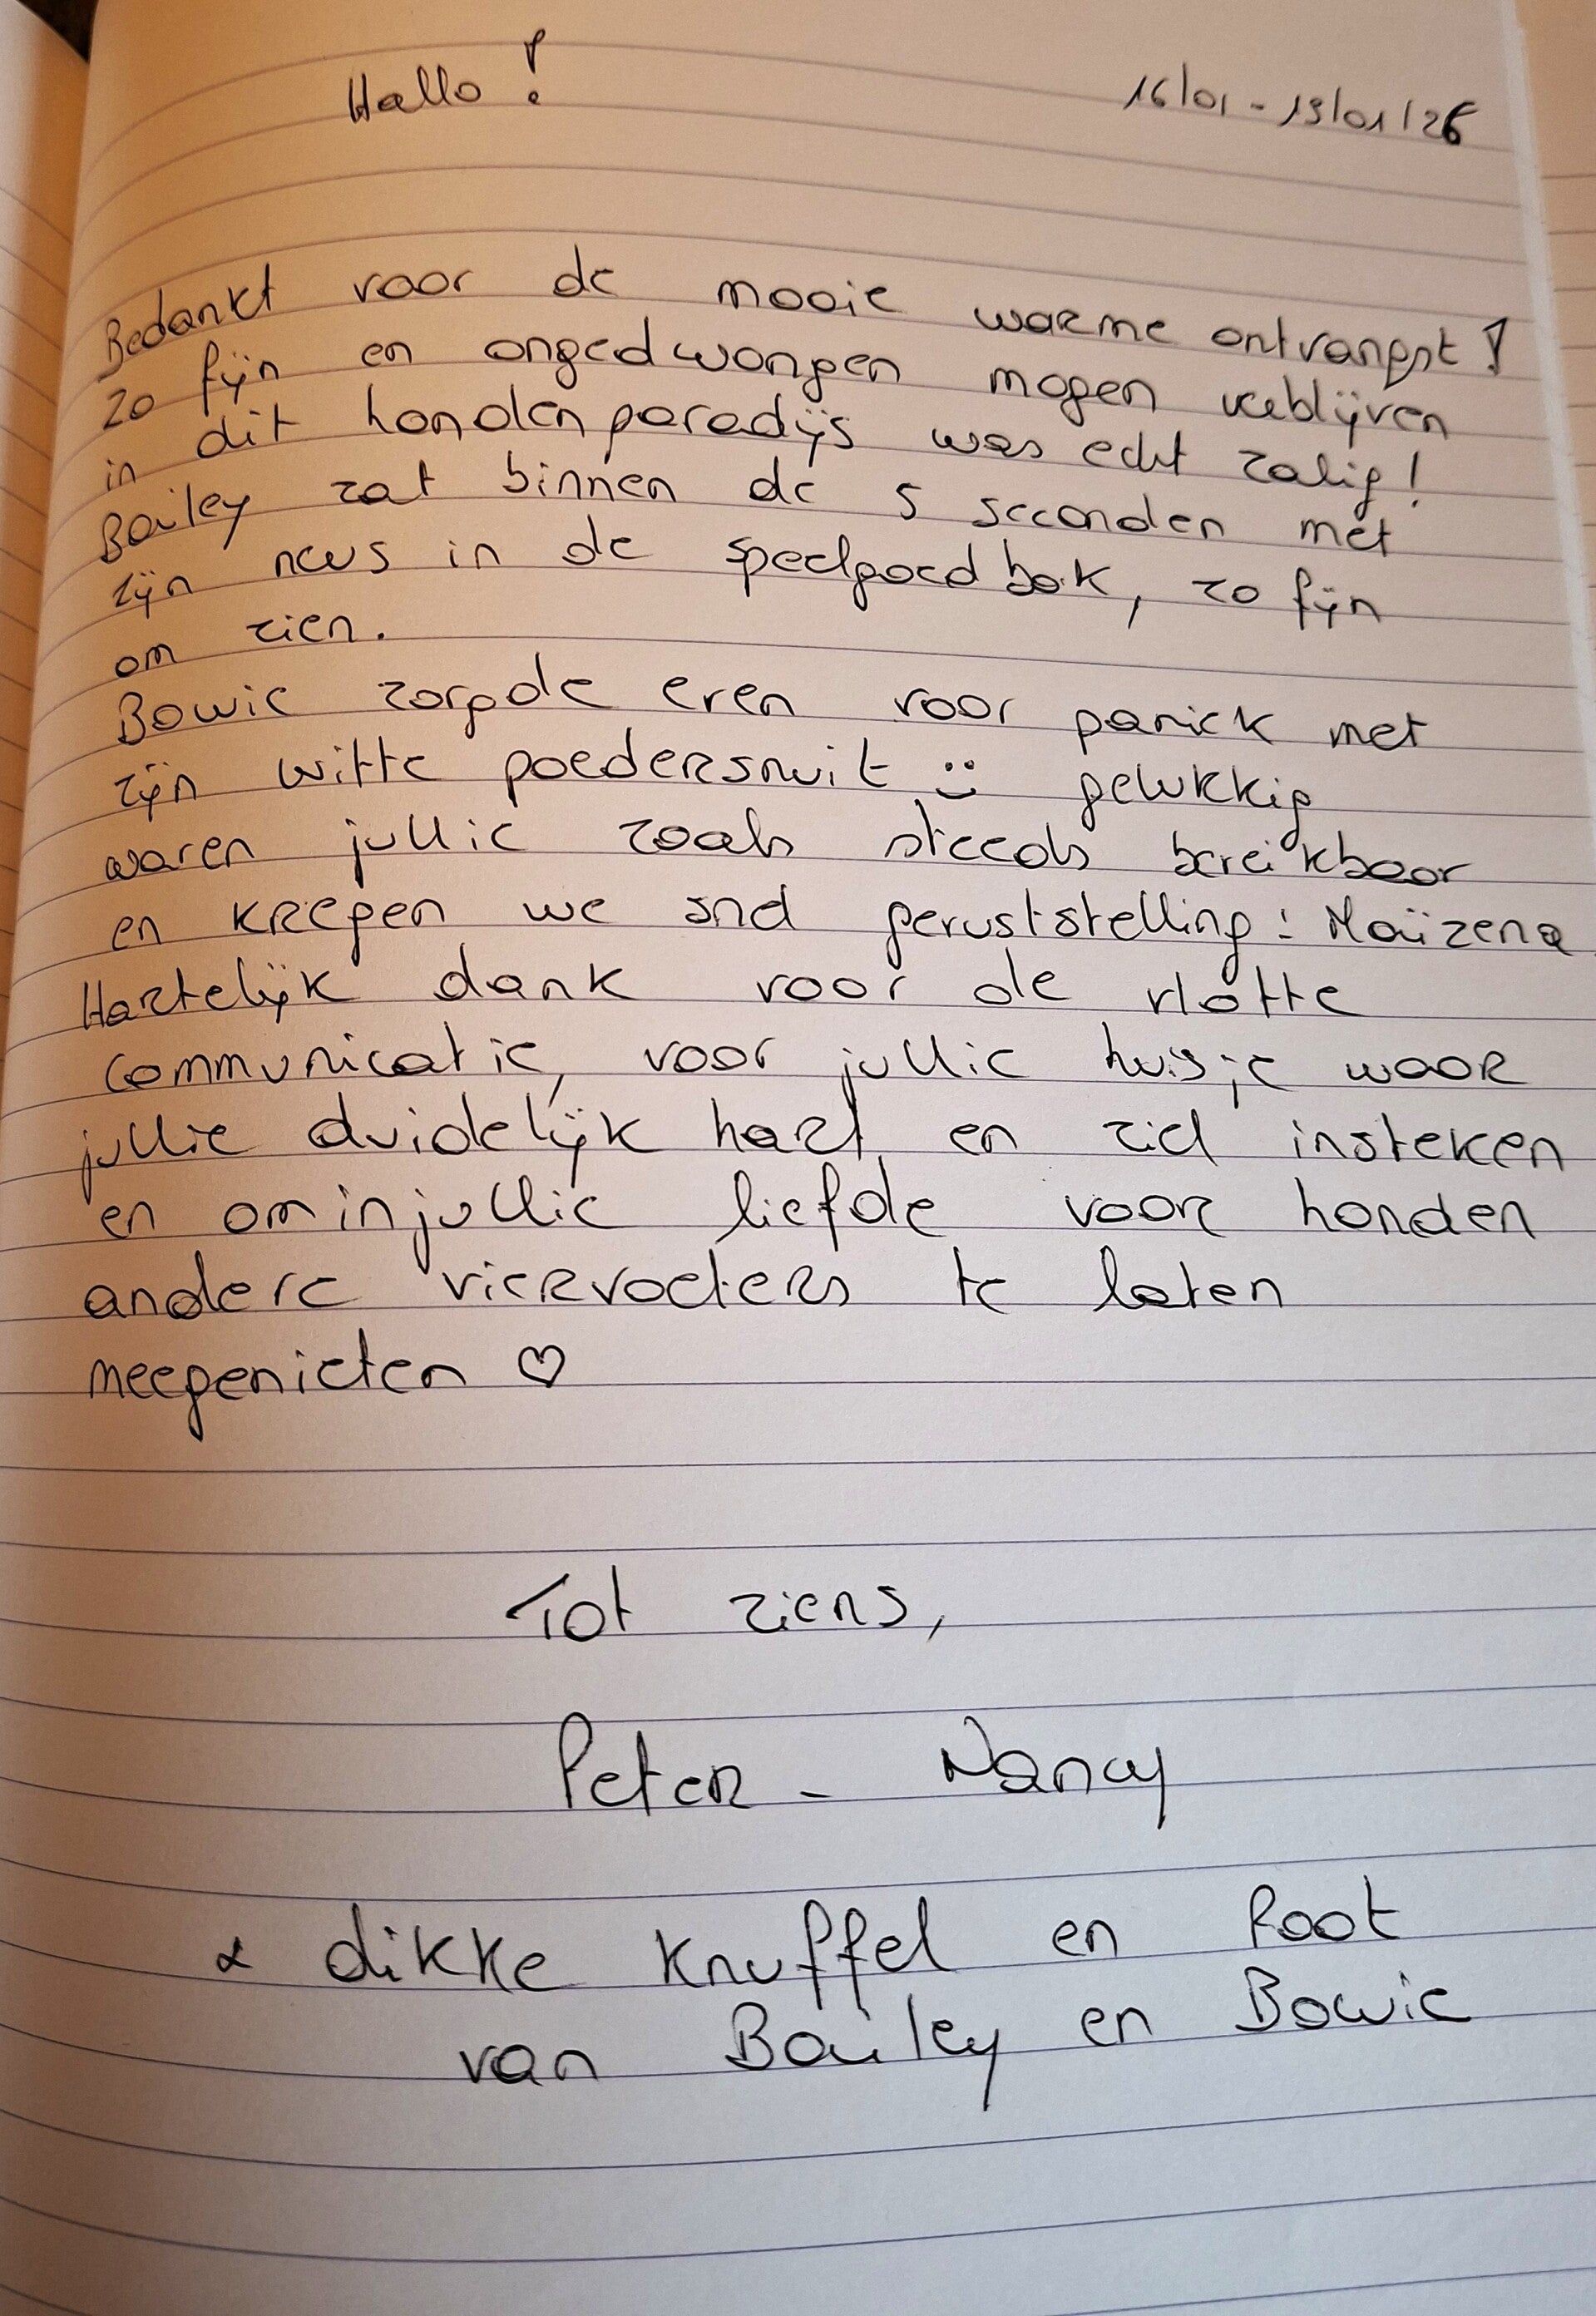 Hallo! 16/01 - 19/01/26
Bedankt voor de mooie warme ontvangst!
Zo fijn en ongedwongen mogen verblijven
in dit hondenparadijs was echt zalig!
Bailey zat binnen de 5 seconden met
zijn neus in de speelgoedbak, zo fijn
om zien.
Bowie zorgde even voor paniek met
zijn witte poedersnuit :) gelukkig
waren jullie zoals steeds bereikbaar
en kregen we snel geruststelling: Maïzena
Hartelijk dank voor de vlotte
communicatie, voor jullie huisje waar
jullie duidelijk hart en ziel insteken
en om in jullie liefde voor honden
andere viervoeters te laten
meegenieten ♡
Tot ziens,
Peter - Nancy
& dikke knuffel en poot
van Bailey en Bowie